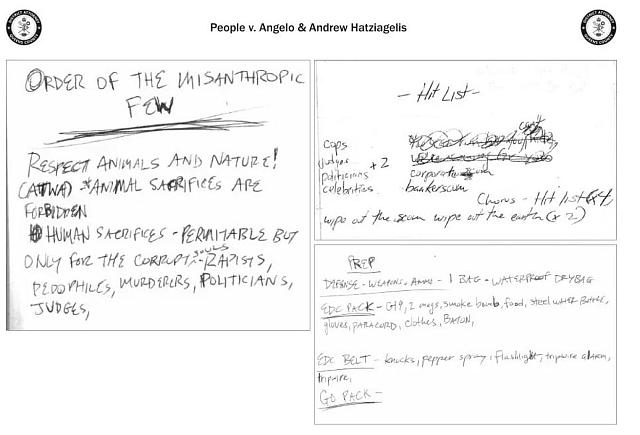 People v. Angelo & Andrew Hatziagelis
ORDER OF THE MISANTHROPIC
FEW
RESPECT ANIMALS AND NATURE!
*ANIMAL SACRIFICES ARE
FORBIDDEN
HUMAN SACRIFICES - PERMITABLE BUT
ONLY FOR THE CORRUPT SOULS - RAPISTS,
PEDOPHILES, MURDERERS, POLITICIANS,
JUDGES,
- Hit List -
cops
judges x2
politicians corporate
celebrities bankerscum
Chorus - Hit list
wipe out the scum wipe out the earth (x2)
PREP
DEFENSE - WEAPONS - AMMO - 1 BAG - WATERPROOF DRYBAG
EDC PACK - G19, 2 mags, smoke bomb, food, steel water bottle,
gloves, PARACORD, clothes, BATON,
EDC BELT - knucks, pepper spray, flashlight, tripwire alarm,
tripwire,
GO PACK -